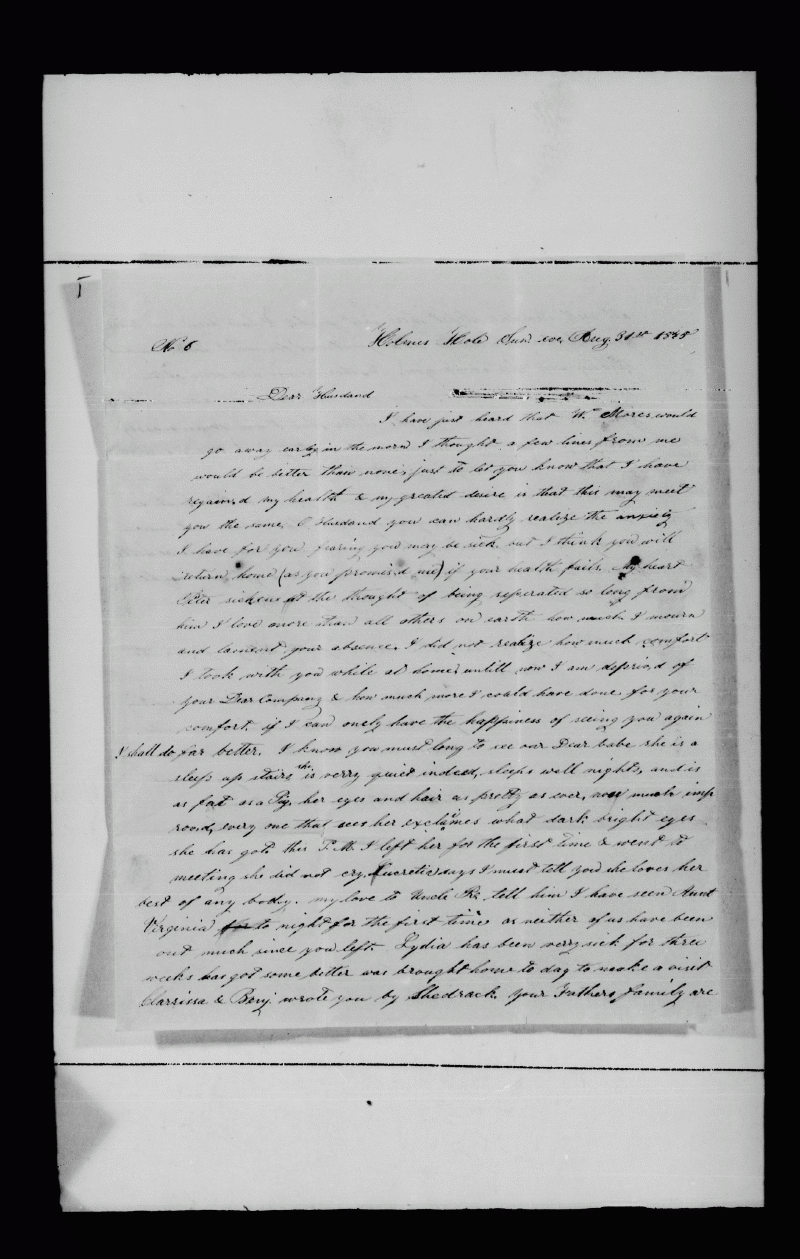 No 6
Holmes Hole Sun. eve, Aug. 31st 1835
Dear Husband
I have just heard that Wm Mores would
go away early in the morn I thought a few lines from me
would be better than none, just to let you know that I have
regain,d my health & my greated desire is that this may meet
you the same. O Husband you can hardly realize the anxiety
I have for you fearing you may be sick. but I think you will
return home (as you promis,d me) if your health fails. My heart
often sickens at the thought of being seperated so long from
him I love more than all others on earth how much I mourn
and lament your absence. I did not realize how much comfort
I took with you while at home, untill now I am depriv,d of
your Dear Company & how much more I could have done for your
comfort. if I can onely have the happiness of seeing you again
I shall do far better. I know you must long to see our Dear babe she is a
sleep up stairs she is verry quiet indeed, sleeps well nights, and is
as fat as a Pig, her eyes and hair as pretty as ever, much imp
roved, every one that sees her exclaimes what dark bright eyes
she has got. this P.M. I left her for the first time & went to
meeting she did not cry. Lucretia says I must tell you she loves her
best of any body. my love to Uncle tell him I have seen Aunt
Virginia to night for the first time as neither of us have been
out much since you left. Lydia has been verry sick for three
weeks has got some better was brought home to day to make a visit
Clarissa & Benj. wrote you by Shedrack. Your Fathers family are